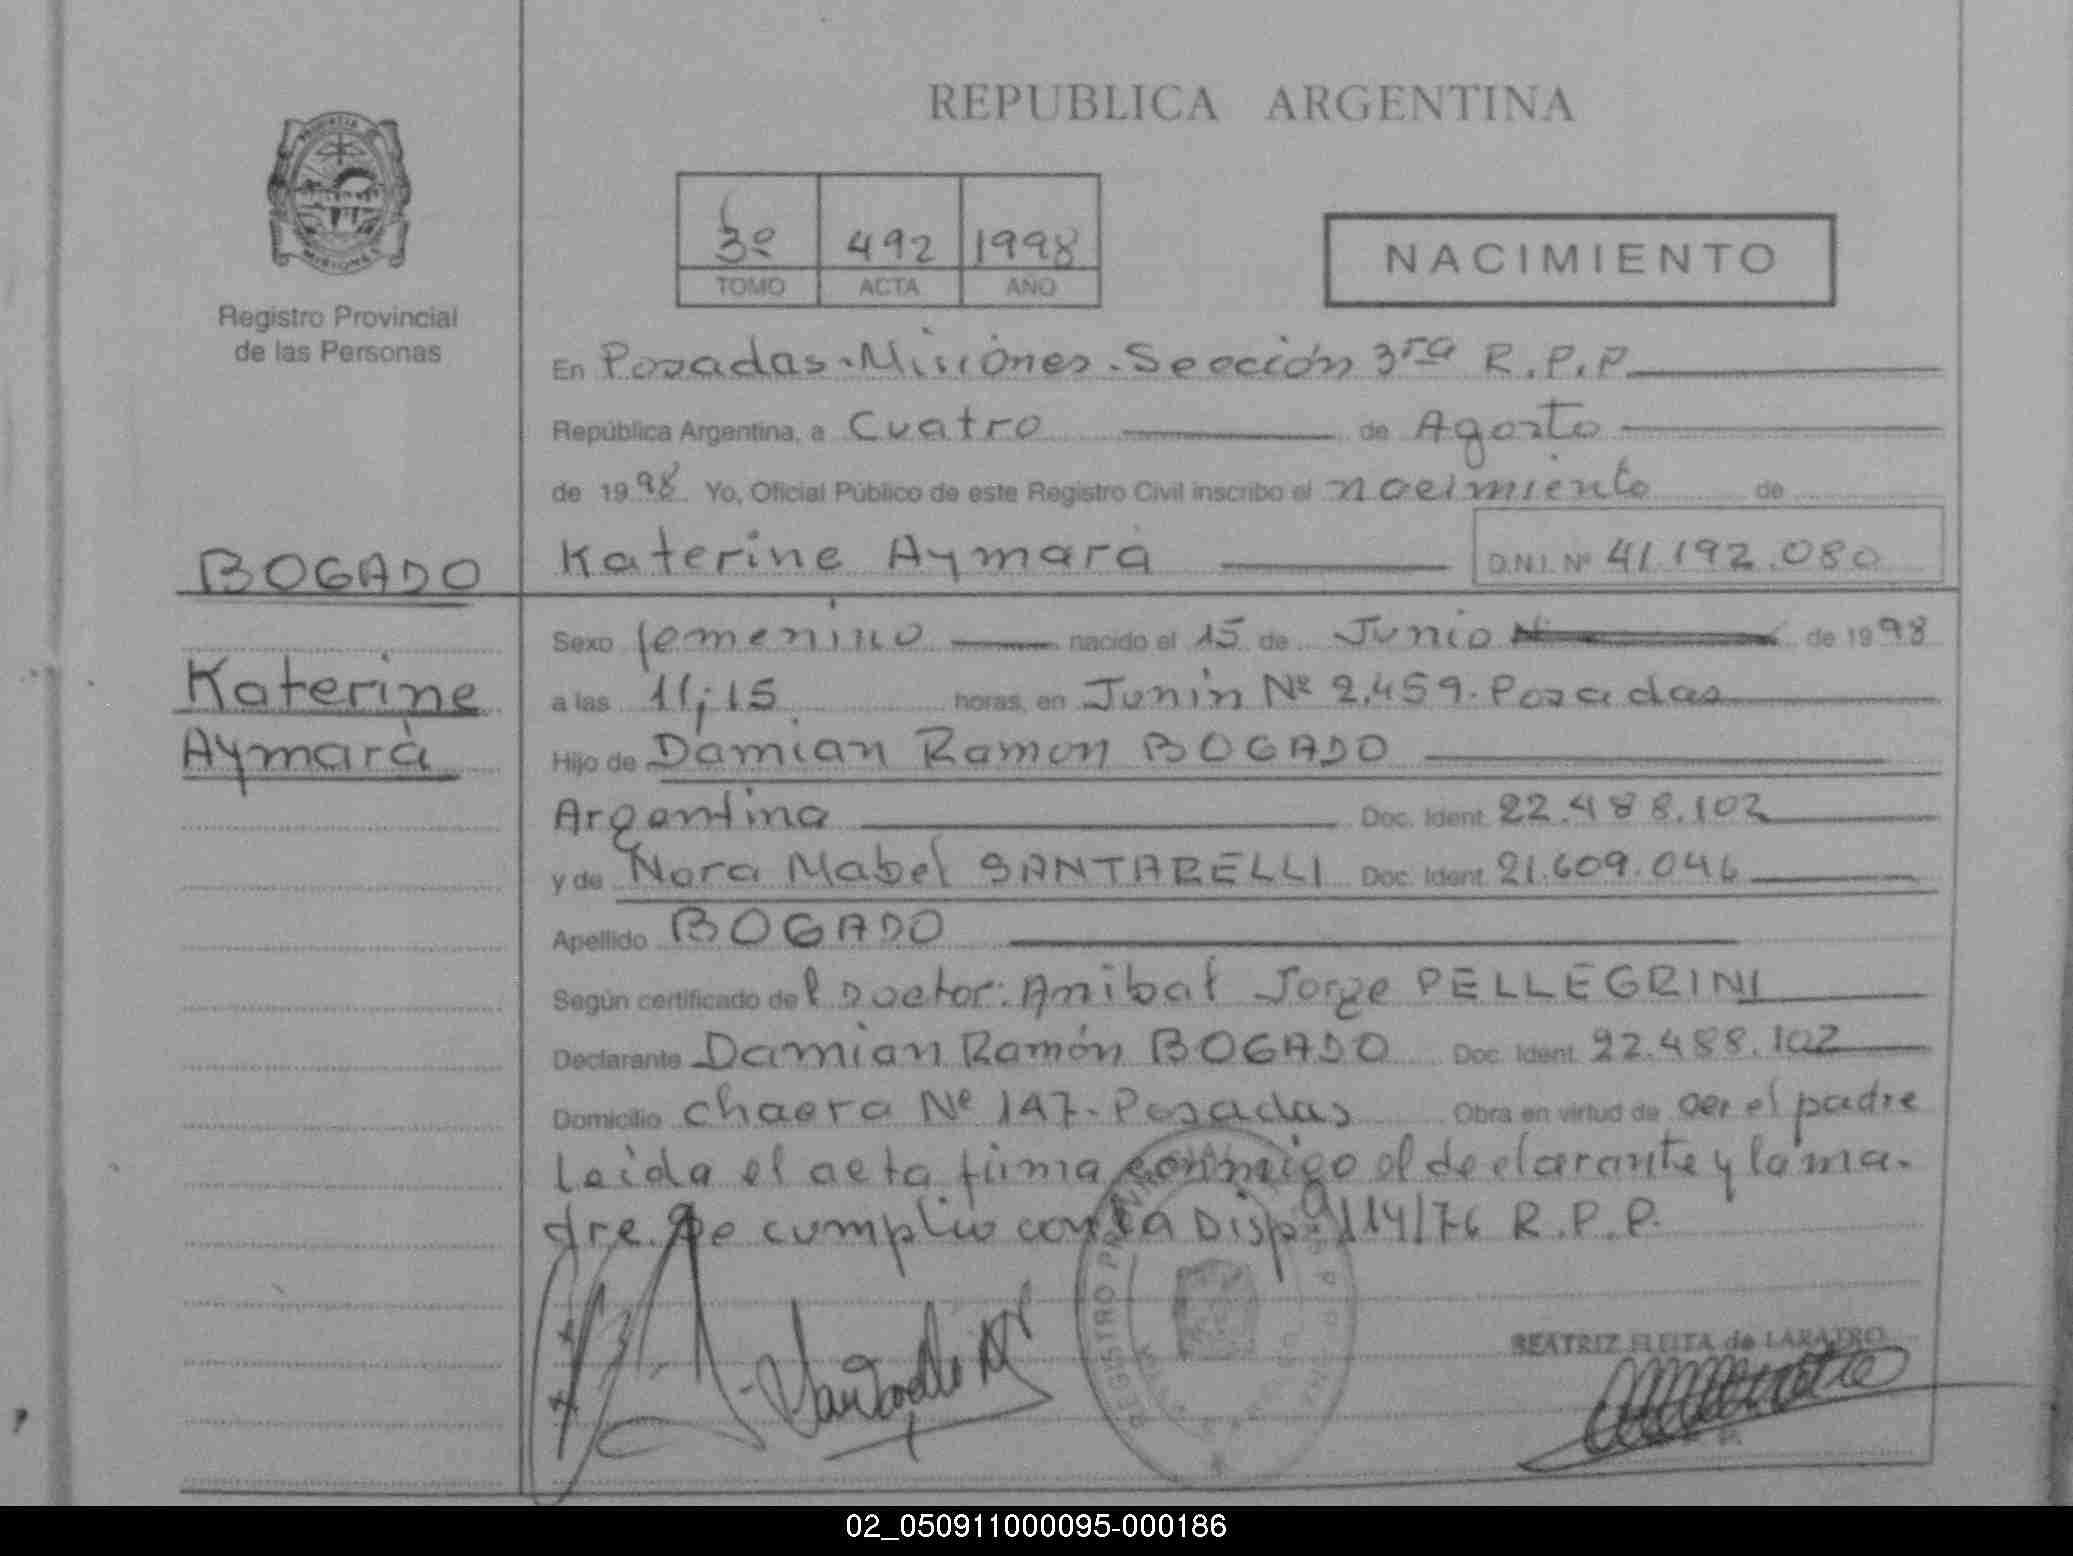 REPUBLICA ARGENTINA
PROVINCIA DE
MISIONES
Registro Provincial
de las Personas
3º 492 1998
TOMO ACTA AÑO
NACIMIENTO
En Posadas-Misiones-Sección 3ra R.P.P.
República Argentina, a Cuatro de Agosto
de 1998 Yo, Oficial Público de este Registro Civil inscribo el nacimiento de
BOGADO
Katerine Aymará D.N.I. Nº 41.192.080
Sexo femenino nacido el 15 de Junio de 1998
Katerine
a las 11;15 horas, en Junin Nº 2.459. Posadas
Aymará
Hijo de Damián Ramon BOGADO
Argentina Doc. Ident. 22.488.102
y de Nora Mabel SANTARELLI Doc. Ident. 21.609.046
Apellido BOGADO
Según certificado del Doctor: Anibal Jorge PELLEGRINI
Declarante Damián Ramón BOGADO Doc. Ident. 22.488.102
Domicilio chacra Nº 147- Posadas Obra en virtud de ser el padre
Leida el acta firma conmigo el declarante y la ma-
dre. Se cumplio con la Disp. 114/76 R.P.P.
REGISTRO
BEATRIZ FLEITA de LARATRO
02_050911000095-000186